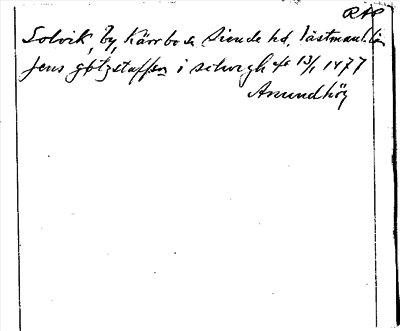 RAP
Solvik, by, Kärrbo sn Siende hd, Västmanl. län
jens gøtzstaffson i silwegh af 13/1 1477
Amundhög